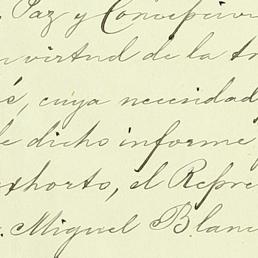 . Paz y Concepción
n virtud de la tra
s, cuya necesidad
e dicho informe
xhorto, el Repre
. Miguel Blan